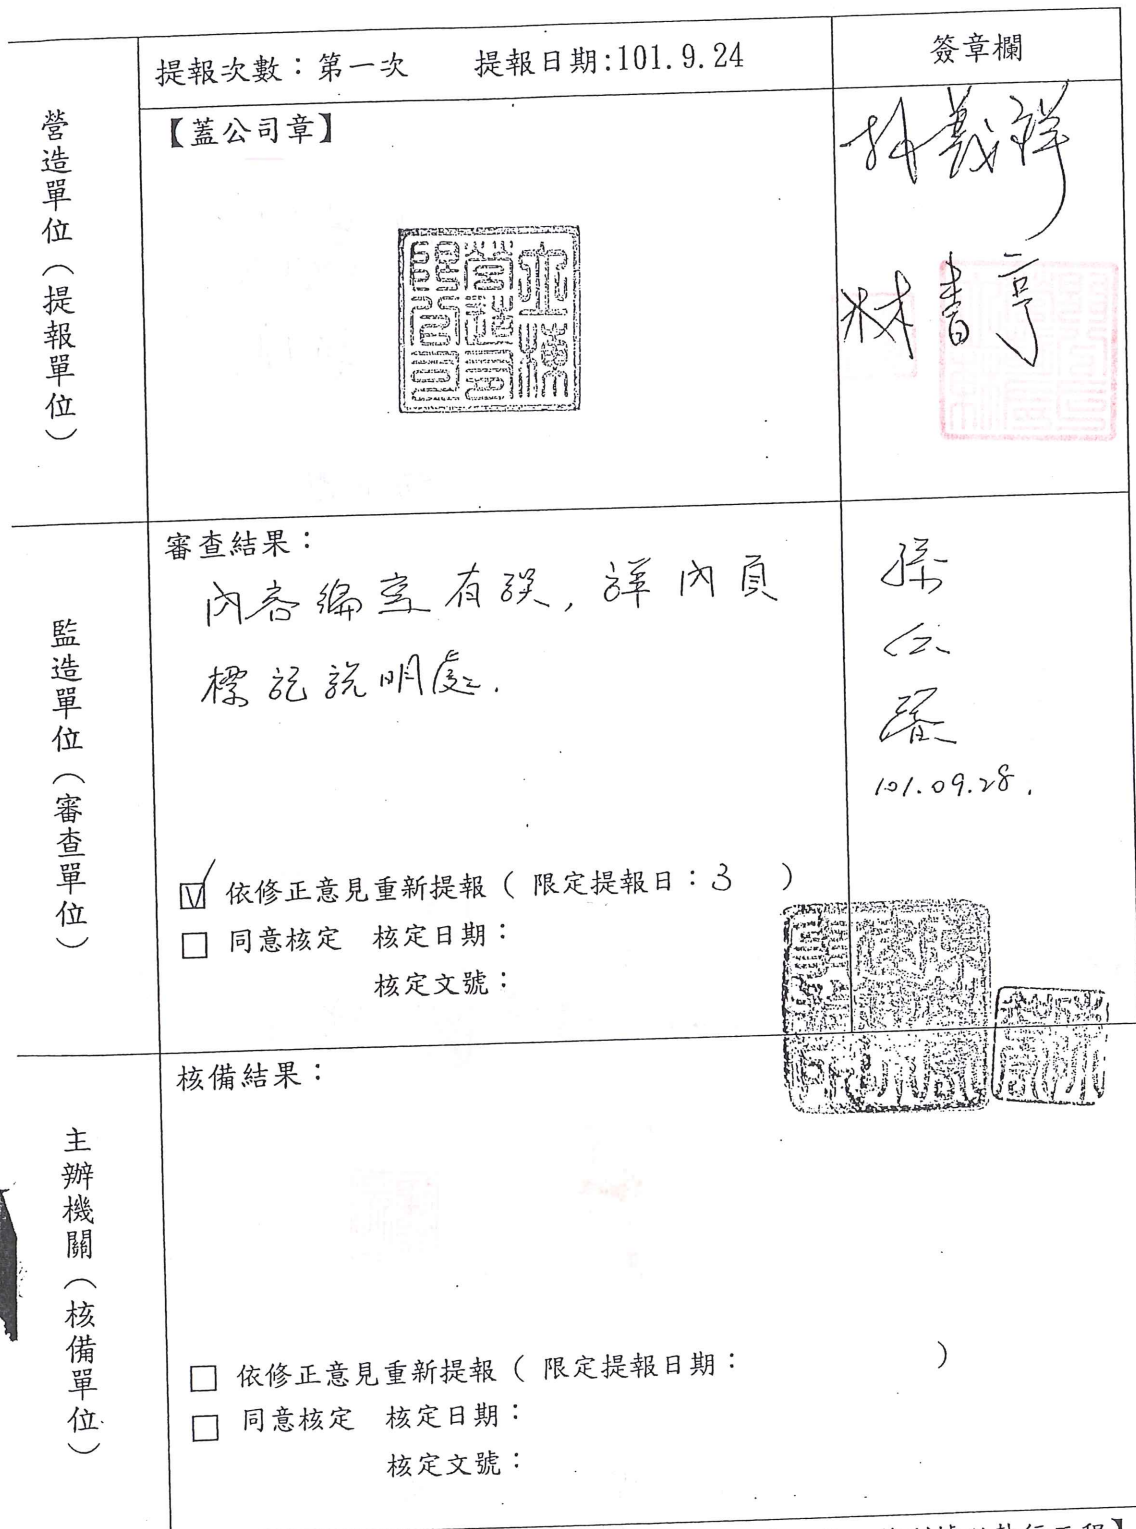 提報次數：第一次 提報日期:101.9.24 簽章欄
營造單位（提報單位）
【蓋公司章】
林義祥
林書亨
監造單位（審查單位）
審查結果：
內容編寫有誤，詳內頁
標記說明處.
孫
101.09.28.
☑ 依修正意見重新提報（限定提報日：3 ）
□ 同意核定 核定日期：
核定文號：
主辦機關（核備單位）
核備結果：
□ 依修正意見重新提報（限定提報日期： ）
□ 同意核定 核定日期：
核定文號：